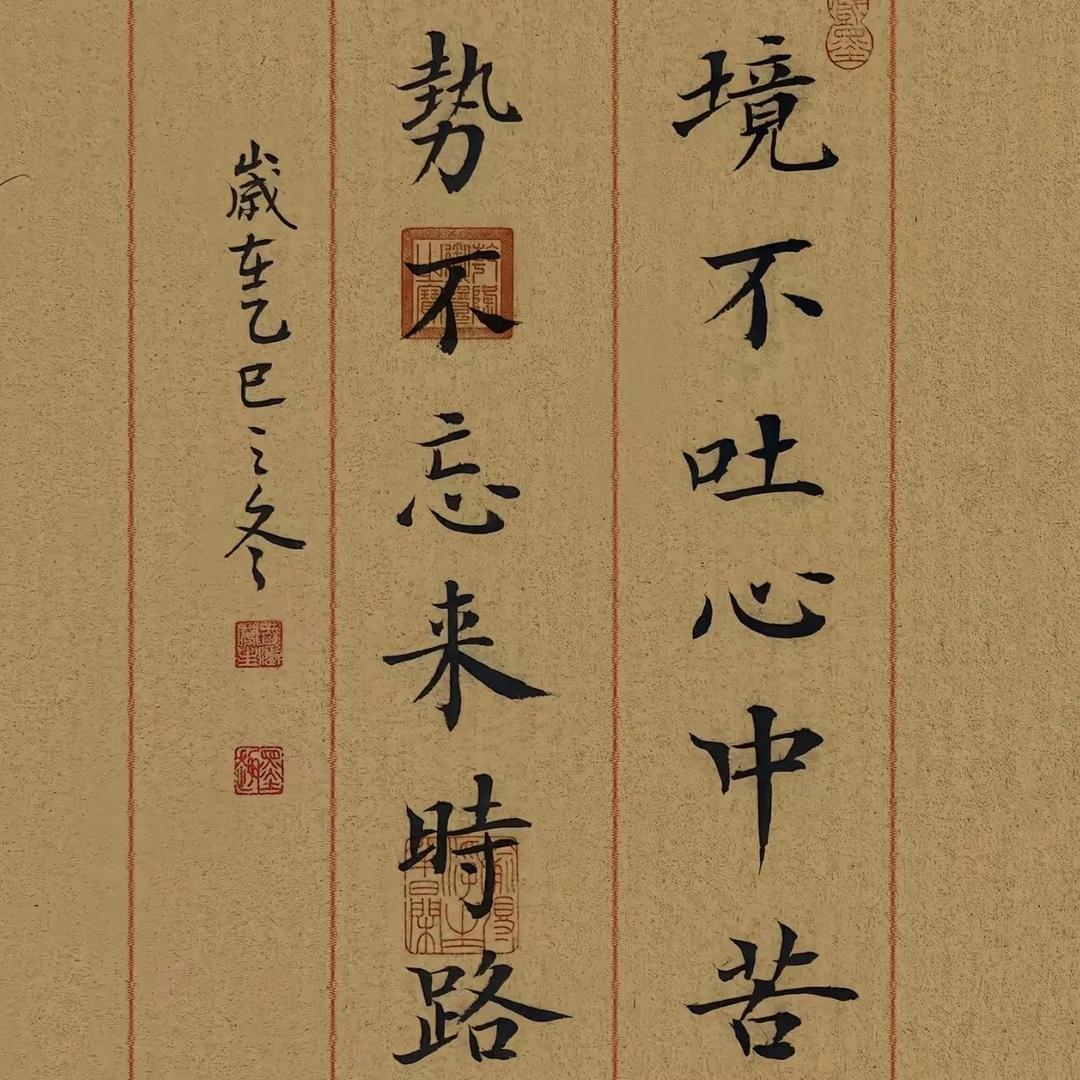 境不吐心中苦
勢不忘来時路
歲在乙巳之冬